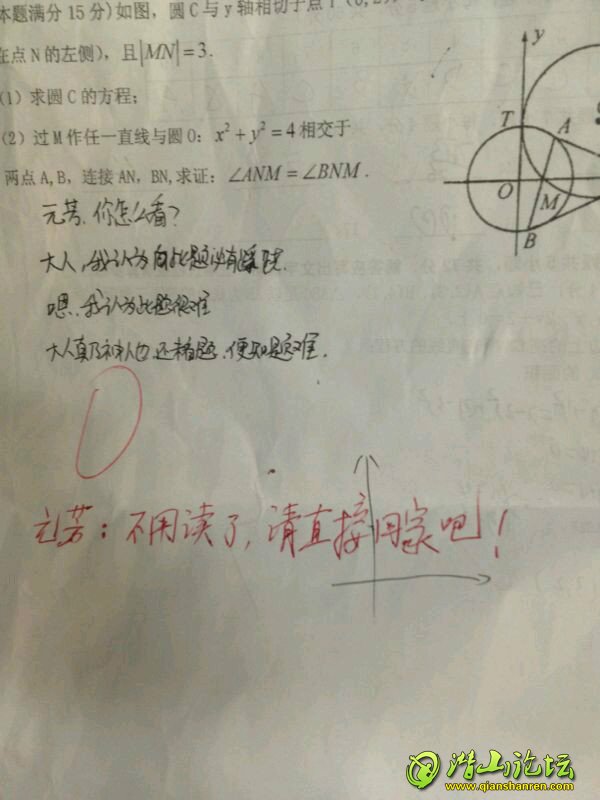 本题满分15分)如图，圆C与y轴相切于点T(0,2)，
在点N的左侧)，且|MN|=3.
(1)求圆C的方程；
(2)过M作任一直线与圆O：x²+y²=4相交于
两点A,B，连接AN，BN,求证：∠ANM=∠BNM.
y
T
A
O
M
B
元芳，你怎么看？
大人，我认为此题必有蹊跷.
嗯，我认为此题很难
大人真乃神人也，还看题，便知题难.
元芳：不用读了，请直接回家吧！
潜山论坛
www.qianshanren.com